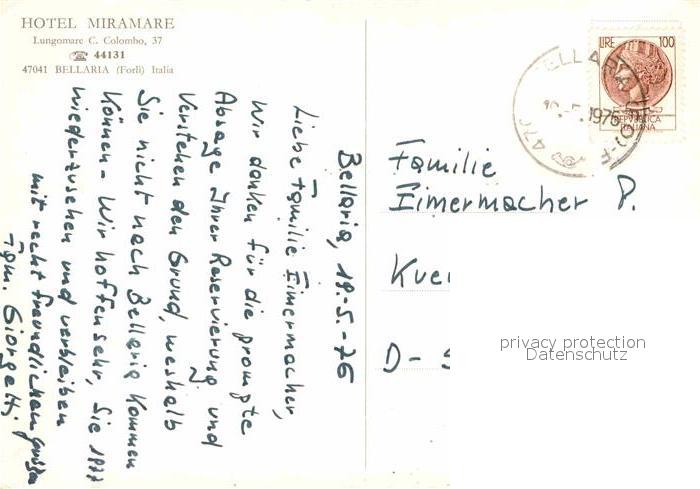 HOTEL MIRAMARE
Lungomare C. Colombo, 37
☎ 44131
47041 BELLARIA (Forlì) Italia
Bellaria, 19.-5.-76
Liebe Familie Eimermacher,
Wir danken für die prompte
Absage Ihrer Reservierung und
Verstehen den Grund, weshalb
Sie nicht nach Bellaria kommen
können - Wir hoffen sehr, Sie 1977
wiederzusehen und verbleiben
mit recht freundlichen grüssen
Fam. Giorgetti
LIRE 100
REPVBBLICA
ITALIANA
BELLARIA
1976
470
Familie
Eimermacher P.
D-
privacy protection
Datenschutz